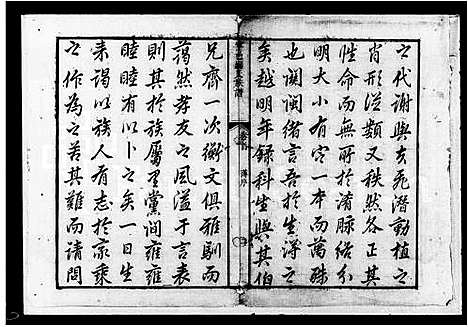 之代謝與夫飛潛動植之
肖形從類又秩然各正其
性命而無所於淆脉絡分
明大小有定一本而萬殊
也關閩緒言吾於生得之
矣越明年録科生與其伯
舊序
兄齊一次衡文俱雅馴而
藹然孝友之風溢于言表
則其於族屬里黨間雍雍
睦睦有以卜之矣一日生
来謁以族人有志於家乘
之作為之苦其難而請問